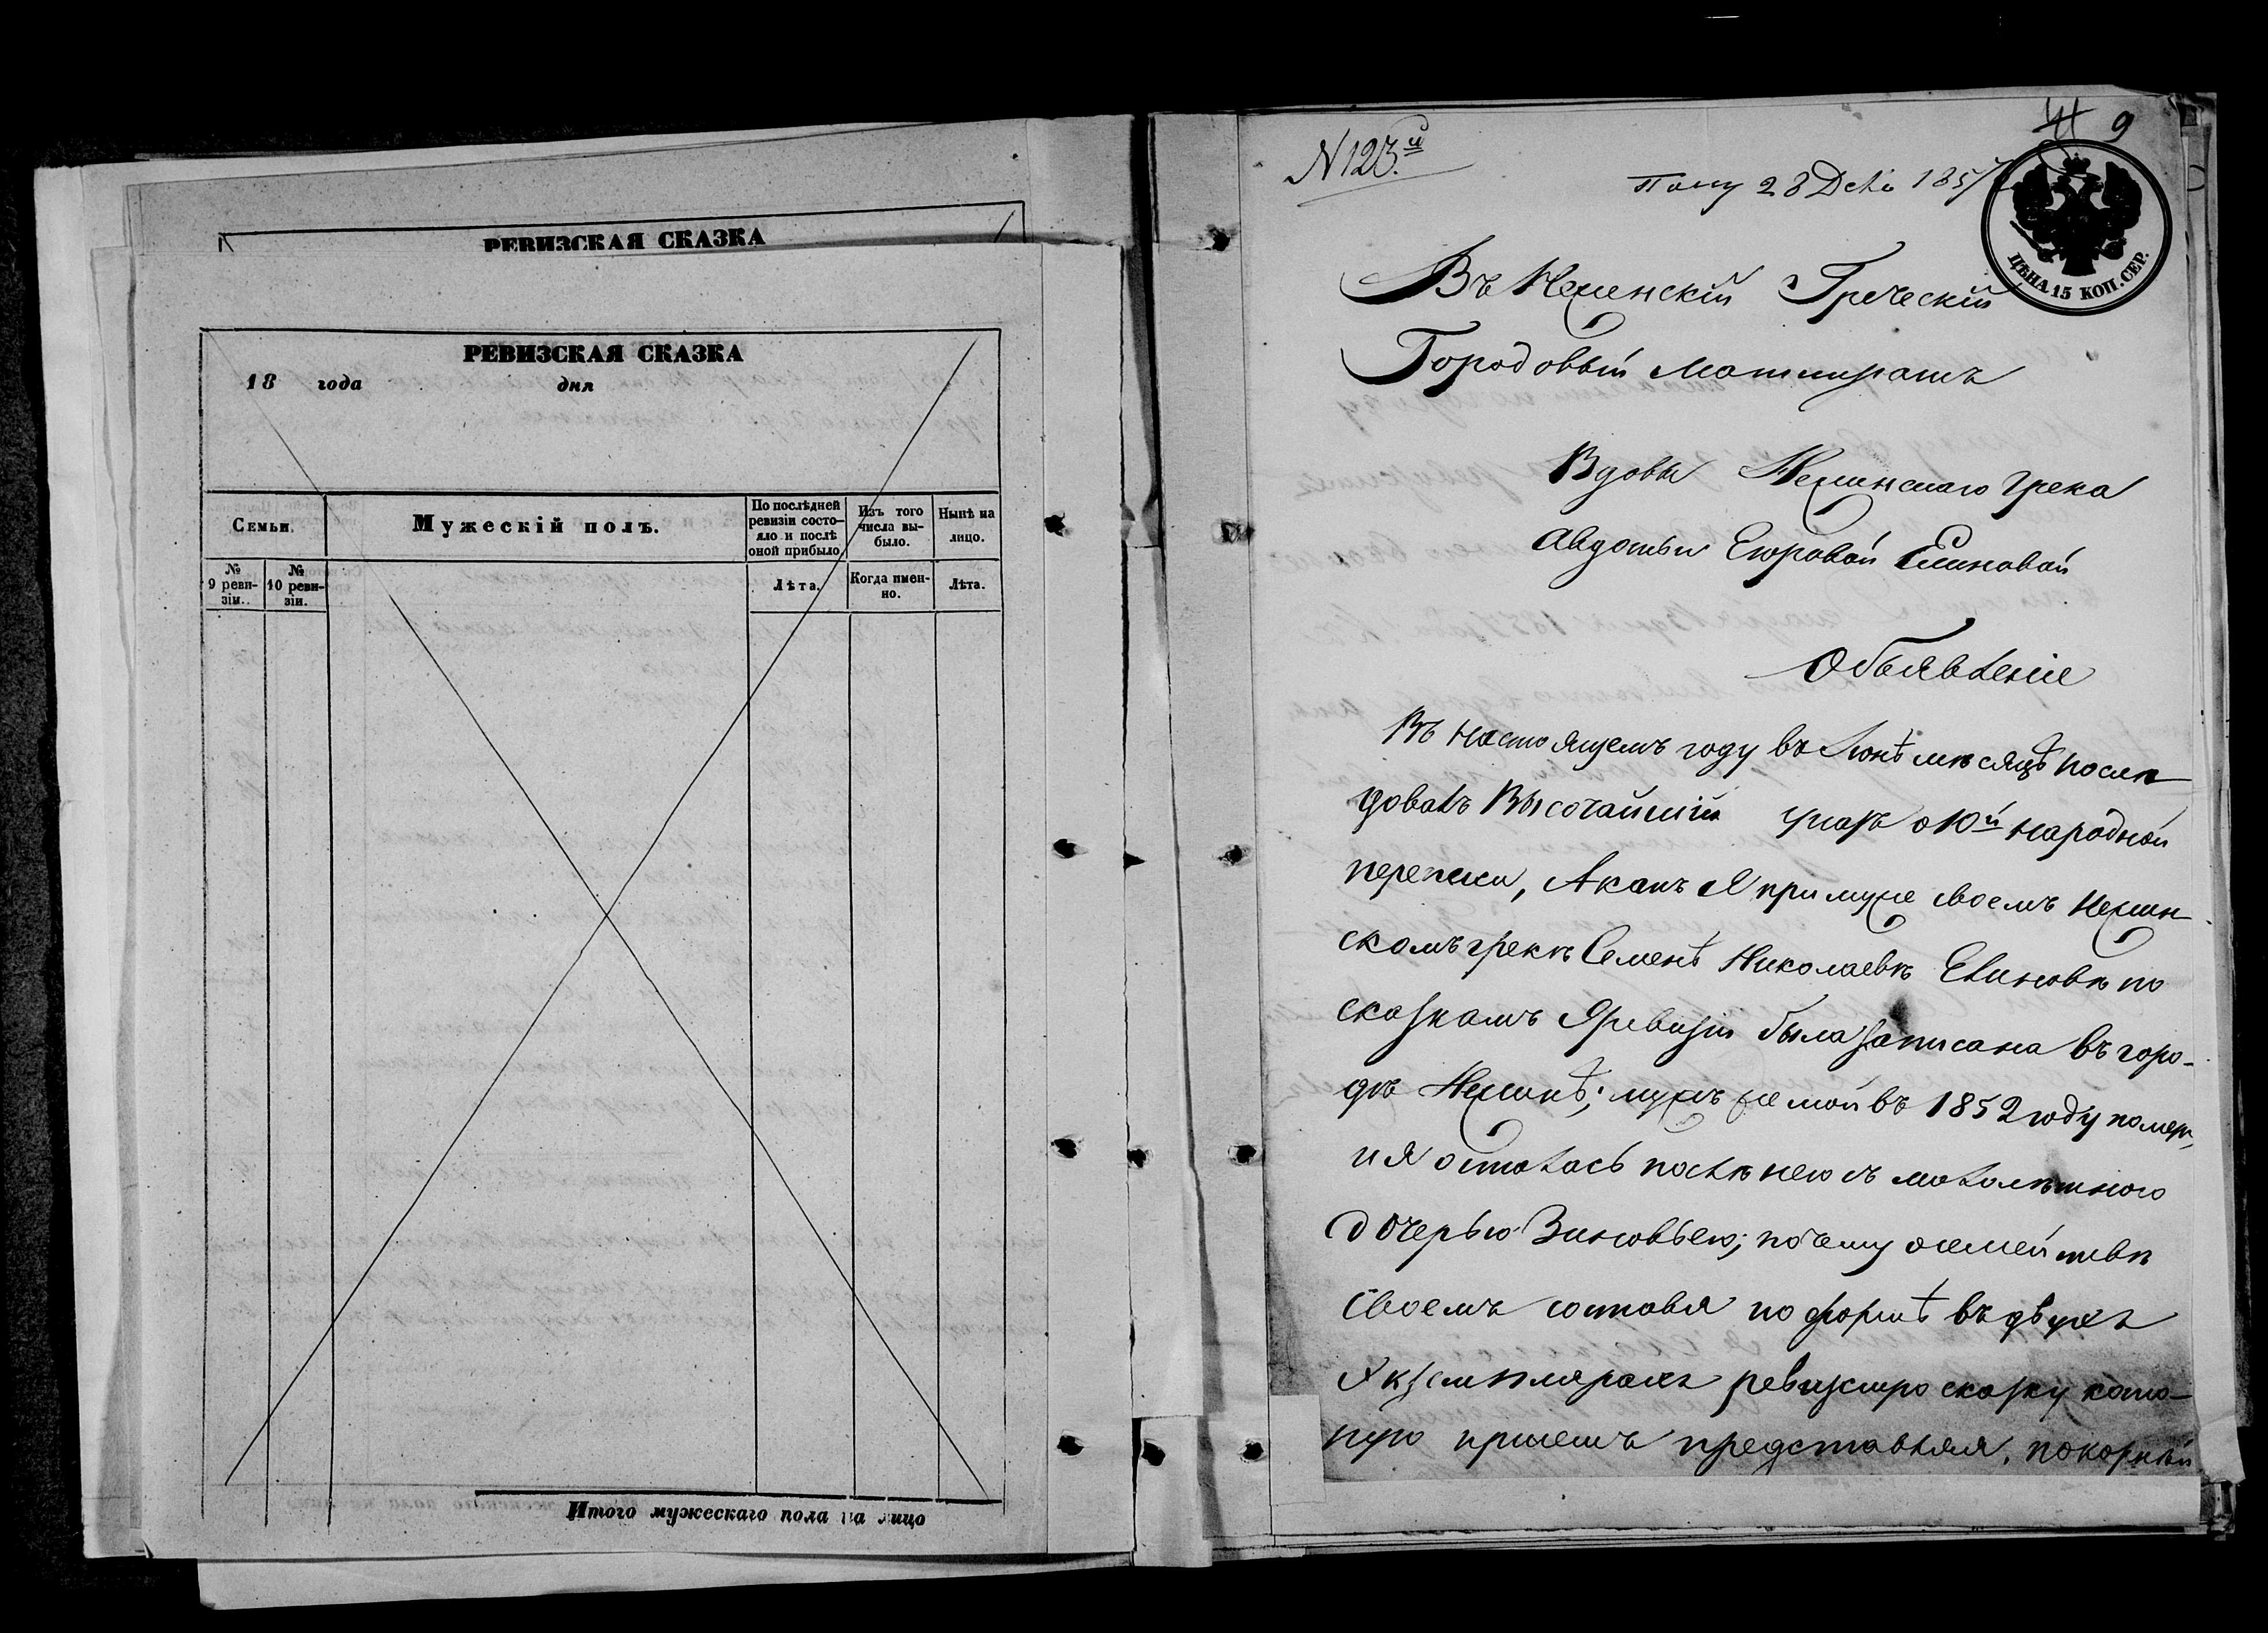 РЕВИЗСКАЯ СКАЗКА
РЕВИЗСКАЯ СКАЗКА
18 года дня
Семьи.
Мужескій полъ.
По послѣдней ревизіи состо-
яло и послѣ
оной прибыло.
Изъ того
числа вы-
было.
Нынѣ на
лицо.
№
9 реви-
зіи.
№
10 реви-
зіи.
Лѣта.
Когда имен-
но.
Лѣта.
Итого мужескаго пола на лицо
N 123.й
9
28 Дек. 1857
ЦѢНА 15 КОП. СЕР.
Въ Неженскій Греческій
Городовый Магистратъ
Вдовы Нежинскаго грека
Авдотьи Егоровой Елиновой
Объявленіе
Въ настоящемъ году въ Іюнѣ мѣсяцѣ послѣ-
довалъ Высочайшій указъ о 10й народной
переписи, А какъ Я при муже своемъ Нежин-
скомъ грекѣ Семенѣ Николаевѣ Елиновѣ по
сказкамъ 9 ревизіи была записана въ горо-
дѣ Нежинѣ; мужъ же мой въ 1852 году померъ,
и я осталась послѣ него съ малолѣтнею
дочерью Зиновьею; почему о семействѣ
своемъ составя по формѣ въ двухъ
Экземплярахъ ревизскую сказку кото-
рую при семъ представляя, покорнѣй